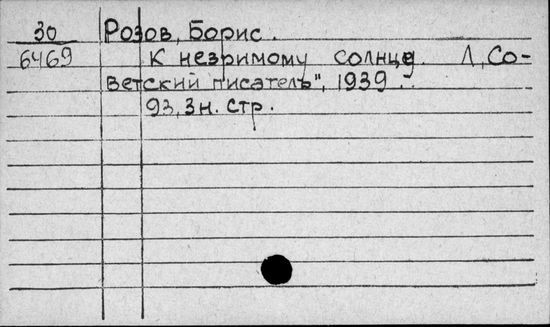 30 Розов, Борис.
6469 К незримому солнцу. Л, Со-
ветский писатель", 1939.
93, 3 н. стр.